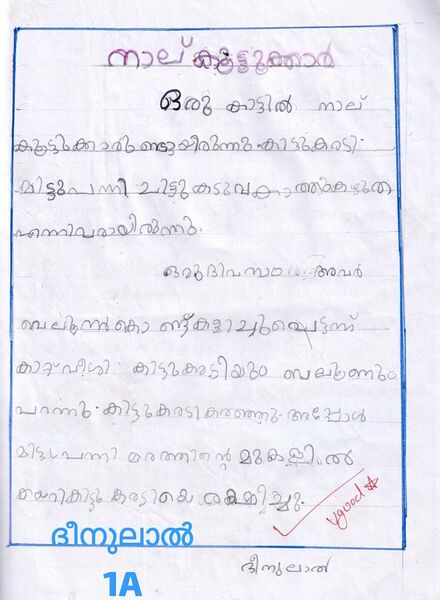 നാല് കൂട്ടുക്കാർ
ഒരു കാട്ടിൽ നാല്
കൂട്ടുക്കാരുണ്ടായിരുന്നു. കിട്ടുകരടി.
മിട്ടുപന്നി ചിട്ടുകടുവ
എന്നിവരായിരുന്നു.
ഒരുദിവസം അവർ
ബലൂൺകൊണ്ട്കളിച്ചുപ്പെട്ടന്ന്
കാറ്റ് വീശി. കിട്ടുകരടിയും ബലൂണും
പറന്നു. കിട്ടുകരടികരഞ്ഞു. അപ്പോൾ
മിട്ടുപന്നി മരത്തിന്റെ മുകളിൽ
കയറികിട്ടു കരടിയെ രക്ഷിച്ചു.
Vgood
ദീനുലാൽ
ദീനുലാൽ
1A